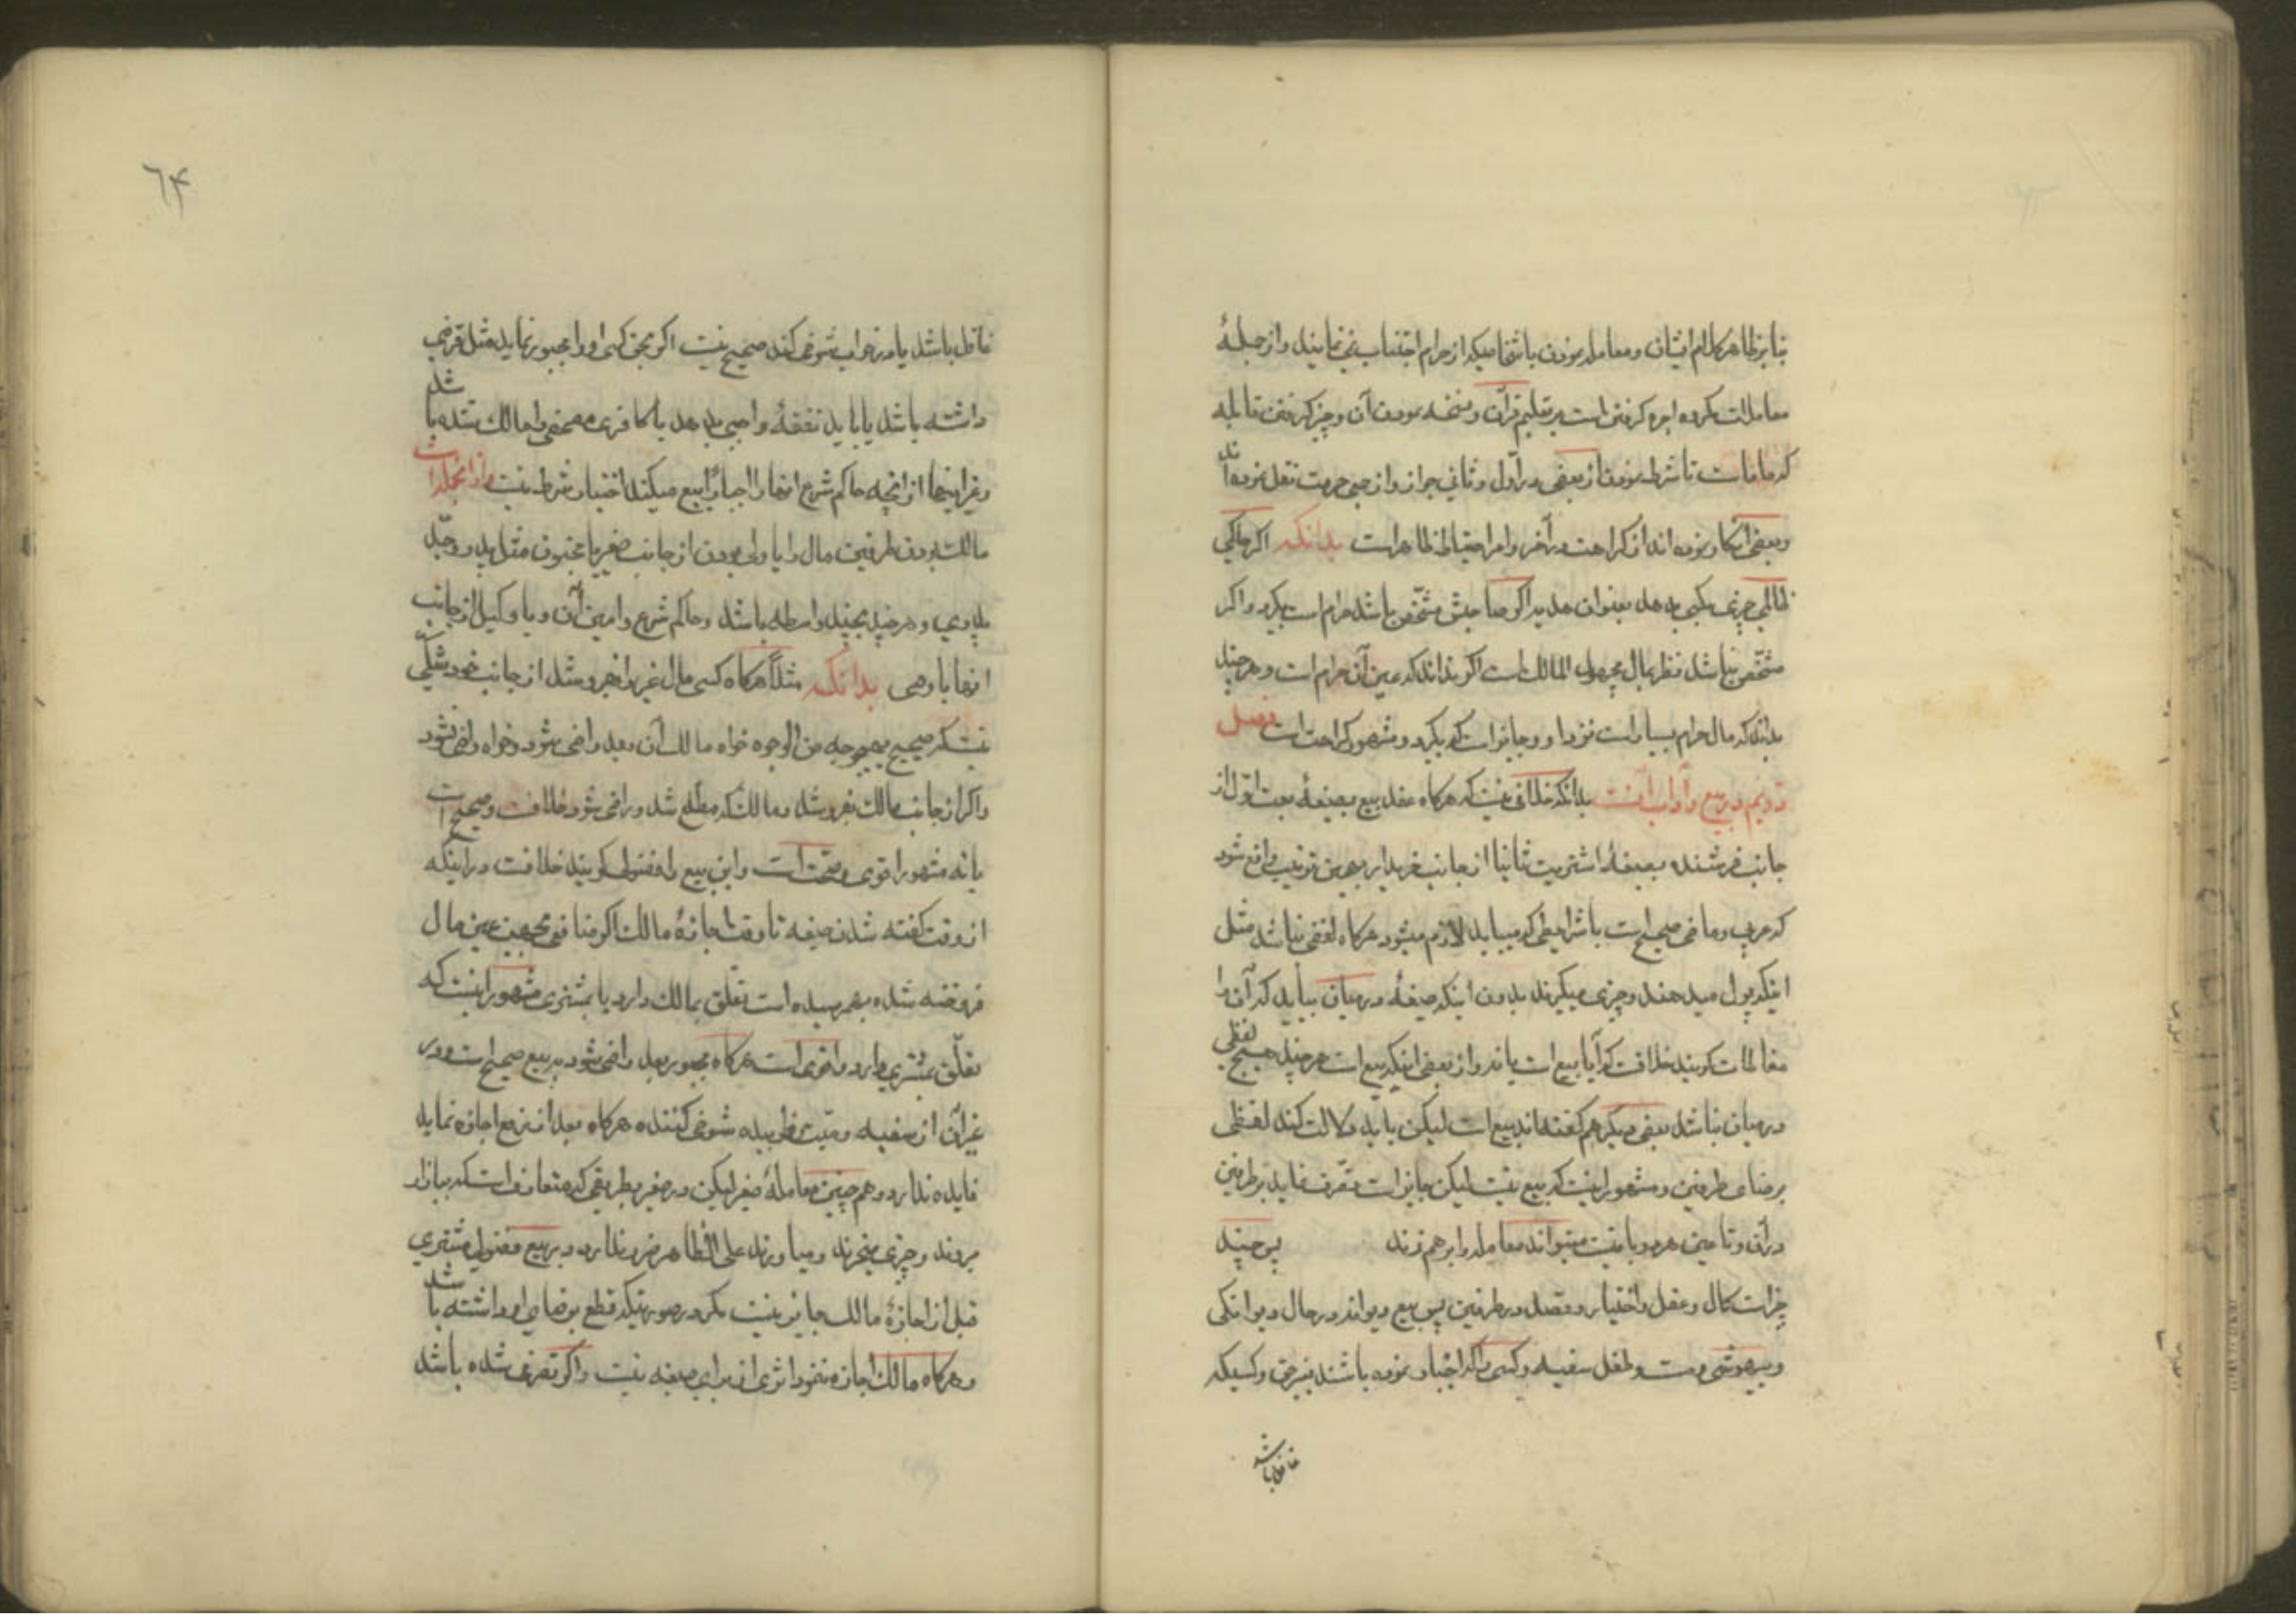 بنا بر ظاهر کلام ایشان و معامله نمودن باشخاصیکه از حرام اجتناب نمی نمایند و از جملهٔ
معاملات مکروه اجره کرفتن است بر تعلیم قرآن و نسخه نمودن آن و چیز کرفتن قابله
که ماماست با شرط نمودن از بعضی در اول و ثانی جواز و از جمعی حرمت نقل نموده اند
و بعضی انکار نموده اند از کراهت در آخر و امر احتیاط ظاهر است بدانکه اکر حاکمی
ظالمی چیزی بکسی بدهد بعنوان هدیه اکر صاحبش مشخص باشد حرام است بکیرد و اکر
مشخص نباشد نظر بمال مجهول المالک است اکر بداند که عین آن حرام است و هر چند
بداند که مال حرام بسیار است نزد او و جایز است که بکیرد و مشهور کراهت است فصل
دویم در بیع و آداب آنست بدانکه خلافی نیست که هرکاه عقد بیع بصیغهٔ بعت اول از
جانب فروشنده بصیغهٔ اشتریت ثانیا از جانب خریدار بهمین ترتیب واقع شود
که عربی و ماضی صحیح است با شرایطی که میباید لازم میشود هرکاه لفظی نباشد مثل
اینکه پول میدهند و چیزی میکیرند بدون اینکه صیغهٔ در میان بیاید که آن را
معاطات کویند خلافست که آیا بیع است یا نه و از بعضی اینکه بیع است هر چند هیچ لفظی
در میان نباشد بعضی دیکر هم کفته اند بیع است لیکن باید دلالت کند لفظی
برضای طرفین و مشهور اینست که بیع نیست لیکن جایز است تصرف نماید بر طرفین
در آن و تا عین هر دو باقیست میتوانند معامله را بر هم زنند پس چند
چیز است کمال و عقل و اختیار و قصد در طرفین پس بیع دیوانه در حال دیوانکی
و بیهوشی و مست و طفل سفیه و کسی را که اجبار نموده باشند بغیر حق و کسیکه
غافل باشد
٦۴
غافل باشد یا در خواب شوخی کند صحیح نیست اکر بحق کسی او را مجبور نماید مثل قرضی
داشته باشد یا باید نفقهٔ واجبی بدهد یا کافری مصحفی را مالک شده باشد
و غیر اینها از آنچه حاکم شرع انها را اجباراً بیع میکند اختیار شرط نیست و از انجمله است
مالک بودن طرفین مال را یا ولی بودن از جانب صغیر یا مجنون مثل پدر و جد
پدری و هر چند بچند واسطه باشد و حاکم شرع و امین آن و یا وکیل از جانب
انها یا وصی بدانکه مثلاً هرکاه کسی مال غیر را بفروشد از جانب خود شکی
نیست که صحیح بهیچ وجه من الوجوه خواه مالک آن بعد راضی شود و خواه راضی نشود
و اکر از جانب مالک بفروشد و مالک که مطلع شد و راضی شود خلافست و صحیح است
یا نه مشهور اقوی صحت است و این بیع را فضولی کویند خلافست در اینکه
از وقت کفته شدن صیغه تا وقت اجازهٔ مالک اکر منافعی عین مال
فروخته شده بهم رسیده است تعلق بمالک دارد یا بمشتری مشهور اینست که
تعلق بمشتری دارد و اقوی است هرکاه مجبور بعد راضی شود بر بیع صحیح است و در
غیر آن از سفیه و مست خوابیده شوخی کننده هرکاه بعد از رفع اجازه نماید
فایده ندارد و هم چنین معاملهٔ صغیر لیکن در صغیر بطریقی که متعارف است که ببازار
میروند و چیزی میخرند و میاورند علی الظاهر ضرر ندارد در بیع فضولی مشتری
قبل از اجازهٔ مالک جایز نیست مکر در صورتیکه قطع برضای او داشته باشد
و هرکاه مالک اجازه ننمود اثری از برای صیغه نیست و اکر تصرفی شده باشد